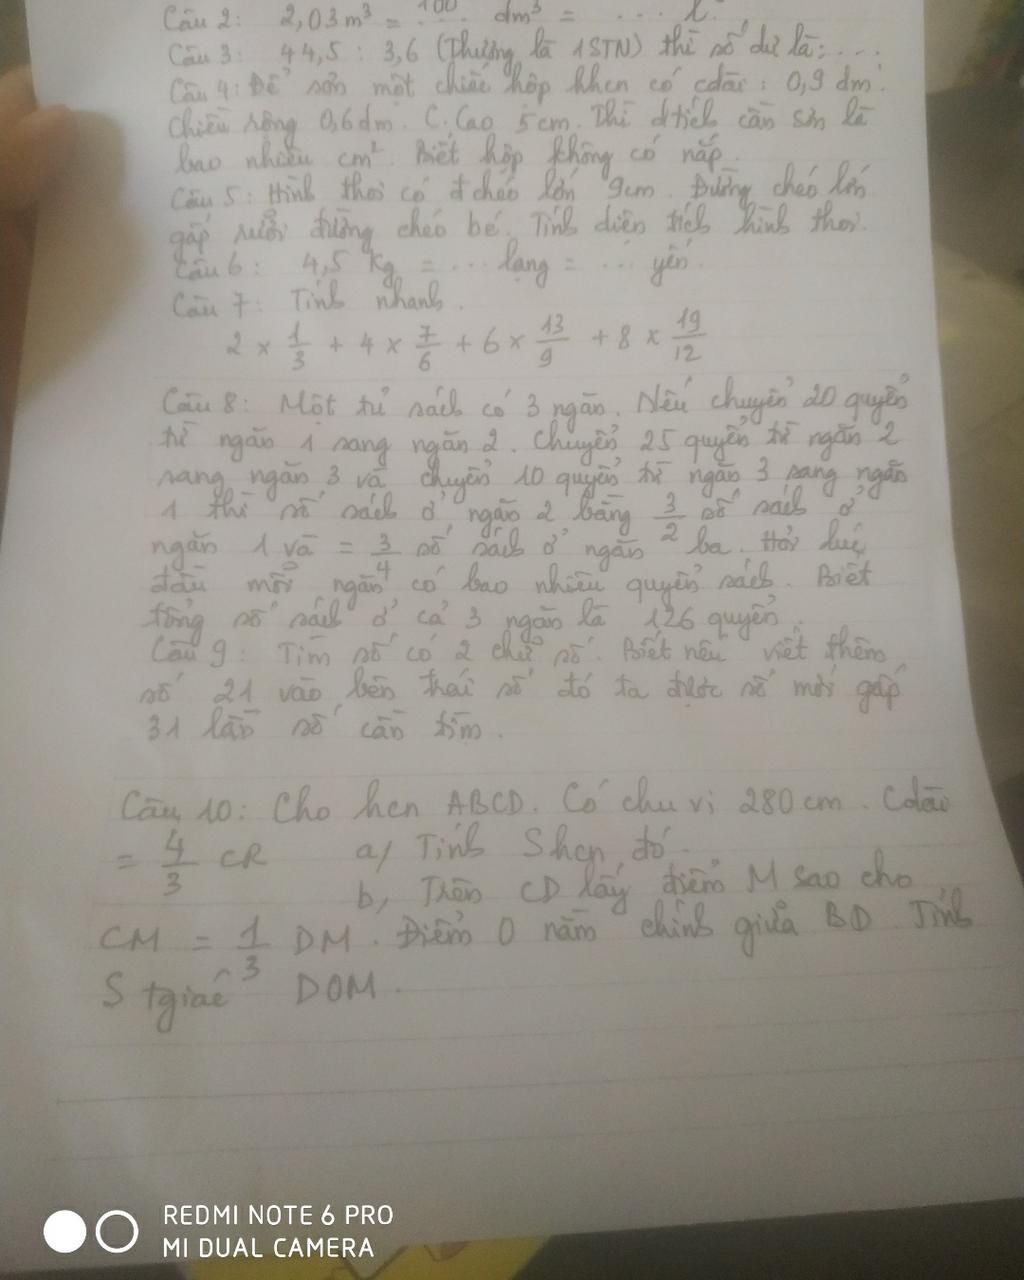 Câu 2: 2,03 m³ = .... dm³ = ... l
Câu 3: 44,5 : 3,6 (Thương là 1STN) thì số dư là: ...
Câu 4: Để sơn một chiếc hộp hhcn có cdài: 0,9 dm.
chiều rộng 0,6dm. C.Cao 5cm. Thì dtích cần sơn là
bao nhiêu cm². Biết hộp không có nắp.
Câu 5: Hình thoi có đ chéo lớn 9cm. Đường chéo lớn
gấp rưỡi đường chéo bé. Tính diện tích hình thoi.
Câu 6: 4,5 Kg = ... lạng = ... yến.
Câu 7: Tính nhanh.
2 × 1/3 + 4 × 7/6 + 6 × 13/9 + 8 × 19/12
Câu 8: Một tủ sách có 3 ngăn. Nếu chuyển 20 quyển
từ ngăn 1 sang ngăn 2. Chuyển 25 quyển từ ngăn 2
sang ngăn 3 và chuyển 10 quyển từ ngăn 3 sang ngăn
1 thì số sách ở ngăn 2 bằng 3/2 số sách ở
ngăn 1 và = 3/4 số sách ở ngăn ba. Hỏi lúc
đầu mỗi ngăn có bao nhiêu quyển sách. Biết
tổng số sách ở cả 3 ngăn là 126 quyển.
Câu 9: Tìm số có 2 chữ số. Biết nếu viết thêm
số 21 vào bên trái số đó ta được số mới gấp
31 lần số cần tìm.
Câu 10: Cho hcn ABCD. Có chu vi 280 cm. Cdài
= 4/3 CR a, Tính Shcn đó.
b, Trên CD lấy điểm M sao cho
CM = 1/3 DM. Điểm O nằm chính giữa BD. Tính
S tgiác DOM.
REDMI NOTE 6 PRO
MI DUAL CAMERA